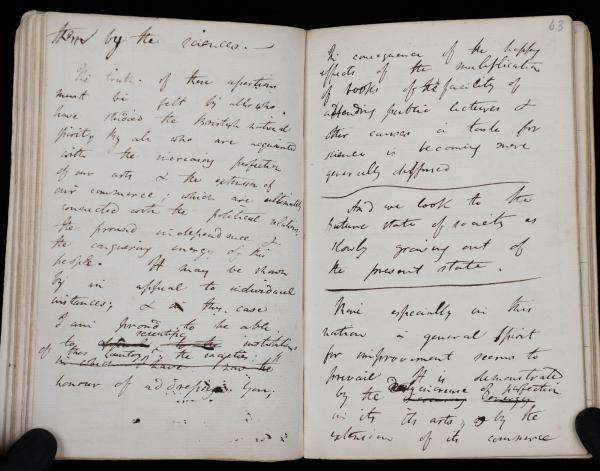 them by the sciences. —
The truth of these assertions
must be felt by all who
have studied the British national
spirit, by all who are acquainted
with the increasing perfection
of our arts & the extension of
our commerce; which are ultimately
connected with the political relations,
the proud independence &
the conquering energy of this
people. It may be shown
by an appeal to individual
instances; & in this case
I am proud to be able
scientific
to the institutions
of this Country; the societies;
in which I have had the
honour of addressing you;
63
In consequence of the happy
effects of the multiplication
of books of the facility of
attending public lectures &
other causes a taste for
science is becoming more
generally diffused
And we look to the
future state of society as
slowly growing out of
the present state.
More especially in this
nation a general spirit
for improvement seems to
prevail It is demonstrated
increase of perfection
by the
in its its arts, by the
extension of its commerce